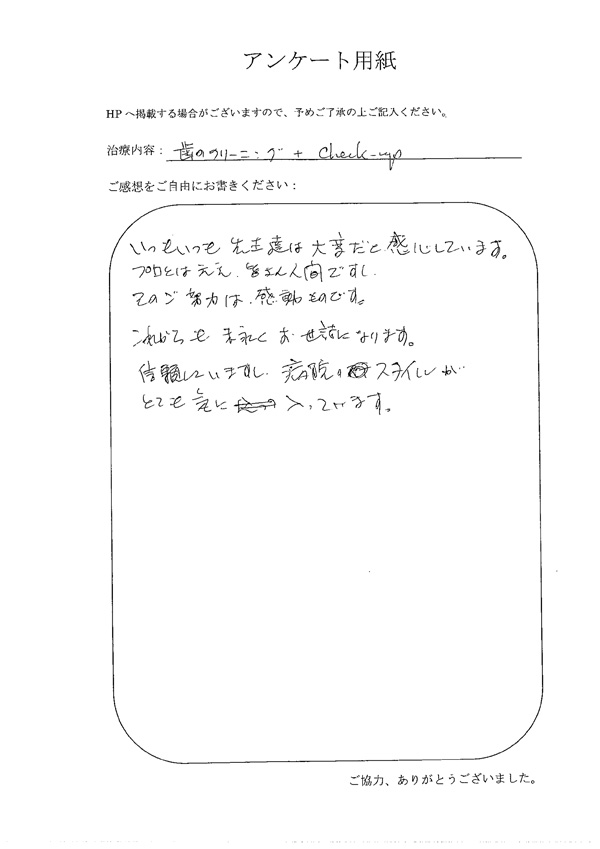 アンケート用紙
HPへ掲載する場合がございますので、予めご了承の上ご記入ください。
治療内容： 歯のクリーニング + Check-up
ご感想をご自由にお書きください：
いつもいつも 先生達は 大変だと 感心しています。
プロとはいえ、皆さん人間ですし、
そのご努力は、感動ものです。
これからも 末永く お世話になります。
信頼していますし、病院の スタイルが
とても 気に 入っています。
ご協力、ありがとうございました。